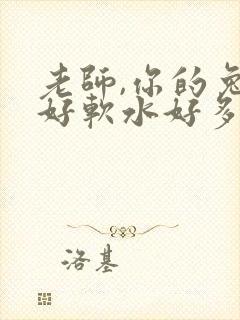 老師,你的兔
好軟水好多
洛基